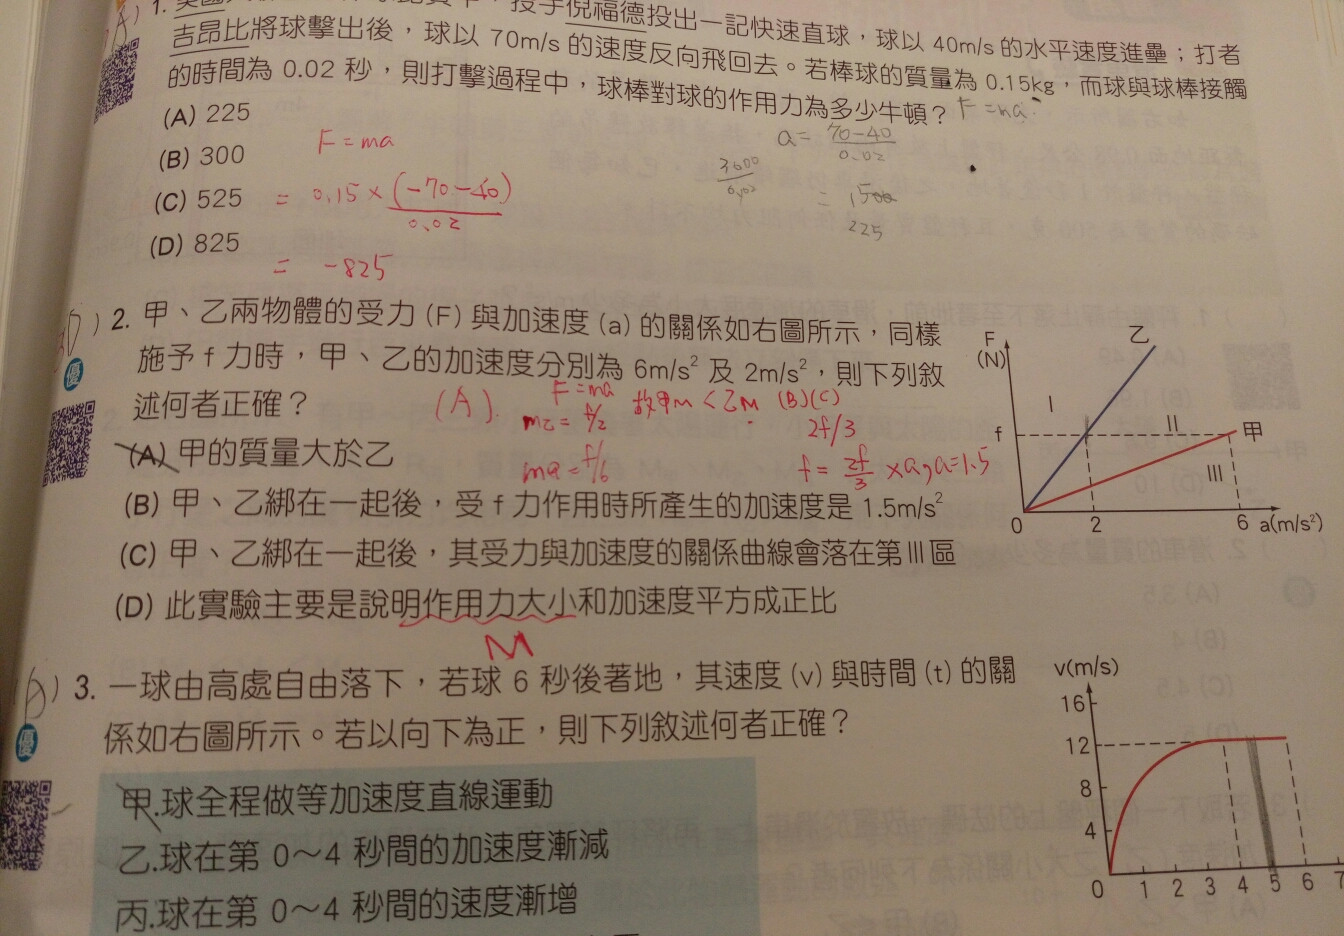 1.
投手倪福德投出一記快速直球，球以 40m/s 的水平速度進壘；打者
吉昂比將球擊出後，球以 70m/s 的速度反向飛回去。若棒球的質量為 0.15kg，而球與球棒接觸
的時間為 0.02 秒，則打擊過程中，球棒對球的作用力為多少牛頓？ F=ma
(A) 225
(B) 300
(C) 525
(D) 825
F=ma
= 0.15×(-70-40)
0.02
= -825
a= 70-40
0.02
3600
0.02
= 1500
225
2. 甲、乙兩物體的受力 (F) 與加速度 (a) 的關係如右圖所示，同樣
施予 f 力時，甲、乙的加速度分別為 6m/s² 及 2m/s²，則下列敘
述何者正確？
優
(A).
F=ma
m乙=f/2
故甲M<乙M (B)(C)
2f/3
f= 2f/3 ×a，a=1.5
(A) 甲的質量大於乙
(B) 甲、乙綁在一起後，受 f 力作用時所產生的加速度是 1.5m/s²
(C) 甲、乙綁在一起後，其受力與加速度的關係曲線會落在第 III 區
(D) 此實驗主要是說明作用力大小和加速度平方成正比
M
F
(N)
乙
I
II
f
甲
III
0 2 6 a(m/s²)
3. 一球由高處自由落下，若球 6 秒後著地，其速度 (v) 與時間 (t) 的關
係如右圖所示。若以向下為正，則下列敘述何者正確？
優
甲.球全程做等加速度直線運動
乙.球在第 0～4 秒間的加速度漸減
丙.球在第 0～4 秒間的速度漸增
v(m/s)
16
12
8
4
0 1 2 3 4 5 6 7